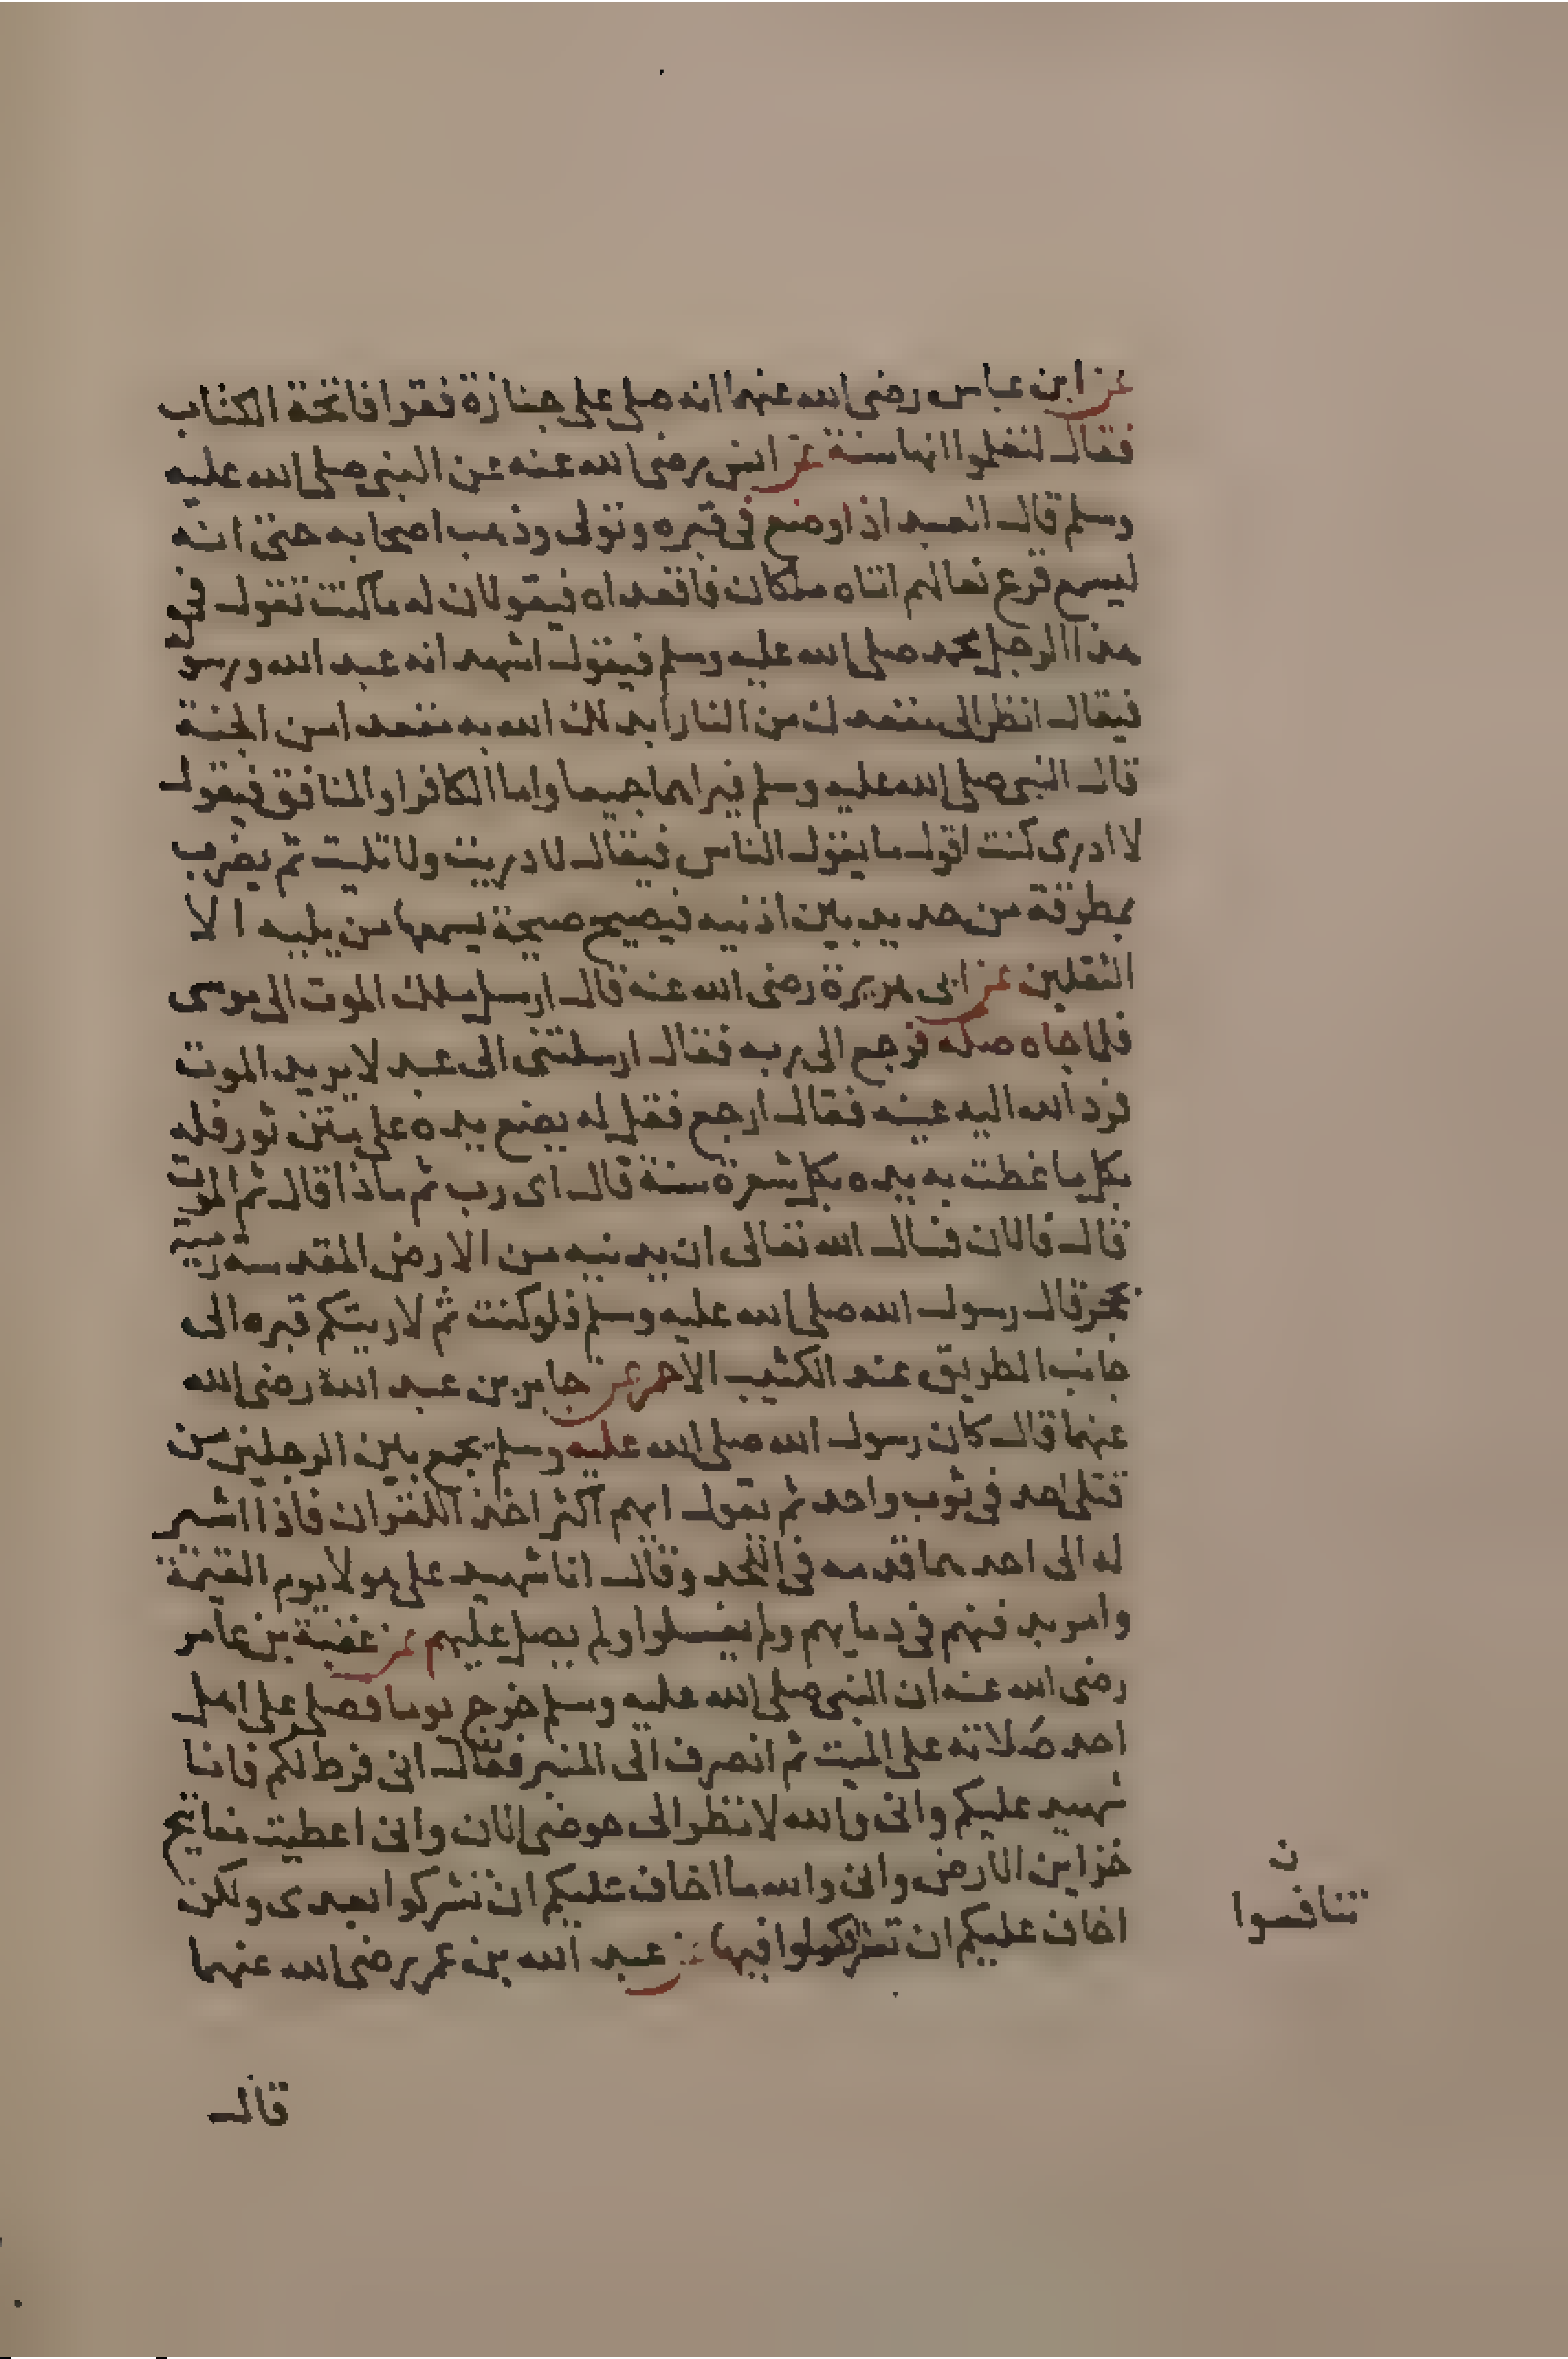 عن ابن عباس رضى الله عنهما انه صلى على جنازة فقرا فاتحة الكتاب
فقال لتعلموا انها سنة عن انس رضى الله عنه عن النبى صلى الله عليه
وسلم قال العبد اذا وضع فى قبره وتولى وذهب اصحابه حتى انه
ليسمع قرع نعالهم اتاه ملكان فاقعداه فيقولان له ما كنت تقول فى
هذا الرجل محمد صلى الله عليه وسلم فيقول اشهد انه عبد الله ورسو
فيقال انظر الى مقعدك من النار ابدلك الله به مقعدا من الجنة
قال النبى صلى الله عليه وسلم فيراهما جميعا واما الكافر او المنافق فيقول
لا ادرى كنت اقول ما يقول الناس فيقال لا دريت ولا تليت ثم يضرب
بمطرقة من حديد بين اذنيه فيصيح صيحة يسمعها من يليه الا
الثقلين عن ابى هريرة رضى الله عنه قال ارسل ملك الموت الى موسى
فلما جاه صكه فرجع الى ربه فقال ارسلتنى الى عبد لا يريد الموت
فرد الله اليه عينه فقال ارجع فقل له يضع يده على متن ثور فله
بكل ما غطت به يده بكل شعرة سنة قال اى رب ثم ماذا قال ثم الموت
قال فالان فسال الله تعالى ان يدنيه من الارض المقدسة رمية
بحجر قال رسول الله صلى الله عليه وسلم فلو كنت ثم لاريتكم قبره الى
جانب الطريق عند الكثيب الاحمر عن جابر بن عبد الله رضى الله
عنهما قال كان رسول الله صلى الله عليه وسلم يجمع بين الرجلين من
قتلى احد فى ثوب واحد ثم يقول ايهم اكثر اخذا للقران فاذا اشير
له الى احدهما قدمه فى اللحد وقال انا شهيد على هولا يوم القيمة
وامر بدفنهم فى دمايهم ولم يغسلوا ولم يصل عليهم عن عقبة بن عامر
رضى الله عنه ان النبى صلى الله عليه وسلم خرج يوما فصلى على اهل
احد صلاته على الميت ثم انصرف الى المنبر فقال انى فرط لكم وانا
شهيد عليكم وانى والله لانظر الى حوضى الان وانى اعطيت مفاتيح
خزاين الارض وانى والله ما اخاف عليكم ان تشركوا بعدى ولكن
اخاف عليكم ان فيها عن عبد الله بن عمر رضى الله عنهما
ن
تنافسوا
قال